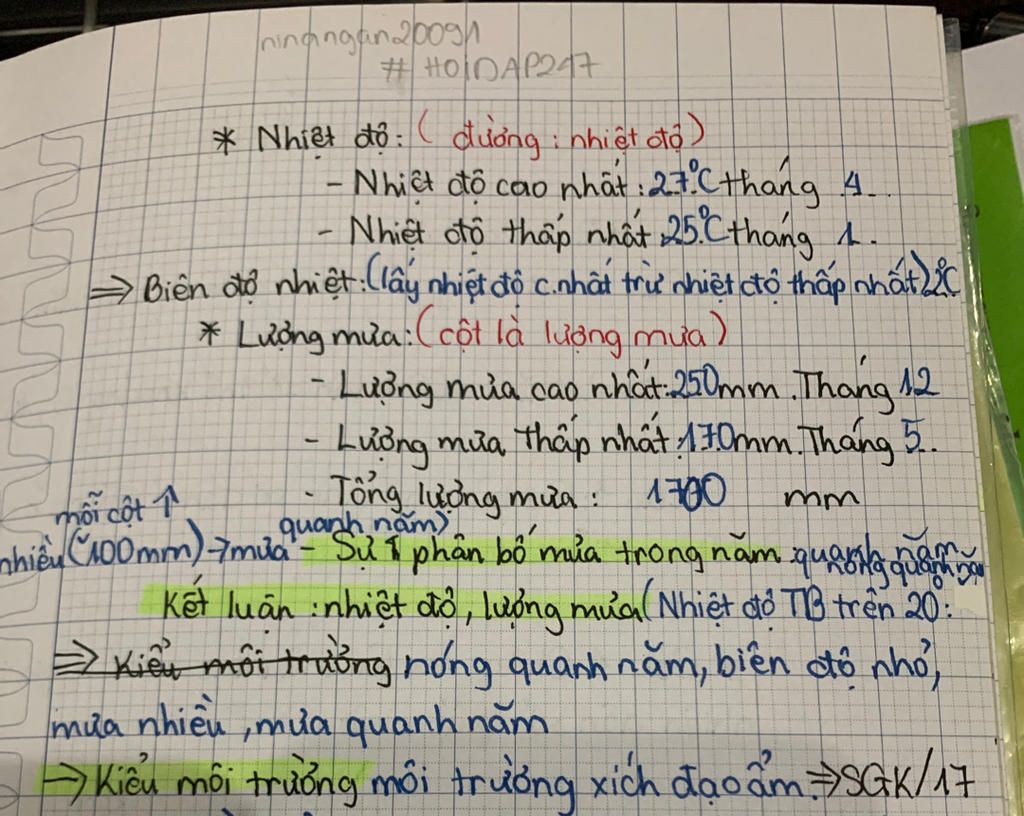 ninhngan20091
# HOIDAP247
* Nhiệt độ: (đường: nhiệt độ)
- Nhiệt độ cao nhất: 27°C tháng 4..
- Nhiệt độ thấp nhất 25°C tháng 1.
=> Biên độ nhiệt: (lấy nhiệt độ c.nhất trừ nhiệt độ thấp nhất) 2°C
* Lượng mưa: (cột là lượng mưa)
- Lượng mưa cao nhất: 250mm. Tháng 12
- Lượng mưa thấp nhất: 170mm. Tháng 5..
- Tổng lượng mưa: 1700 mm
mỗi cột ↑
quanh năm)
nhiều (~100mm) → mưa - Sự phân bố mưa trong năm quanh năm
nóng quanh năm
Kết luận: nhiệt độ, lượng mưa (Nhiệt độ TB trên 20°:
=> Kiểu môi trường nóng quanh năm, biên độ nhỏ,
mưa nhiều, mưa quanh năm
→ Kiểu môi trường môi trường xích đạo ẩm. => SGK/17